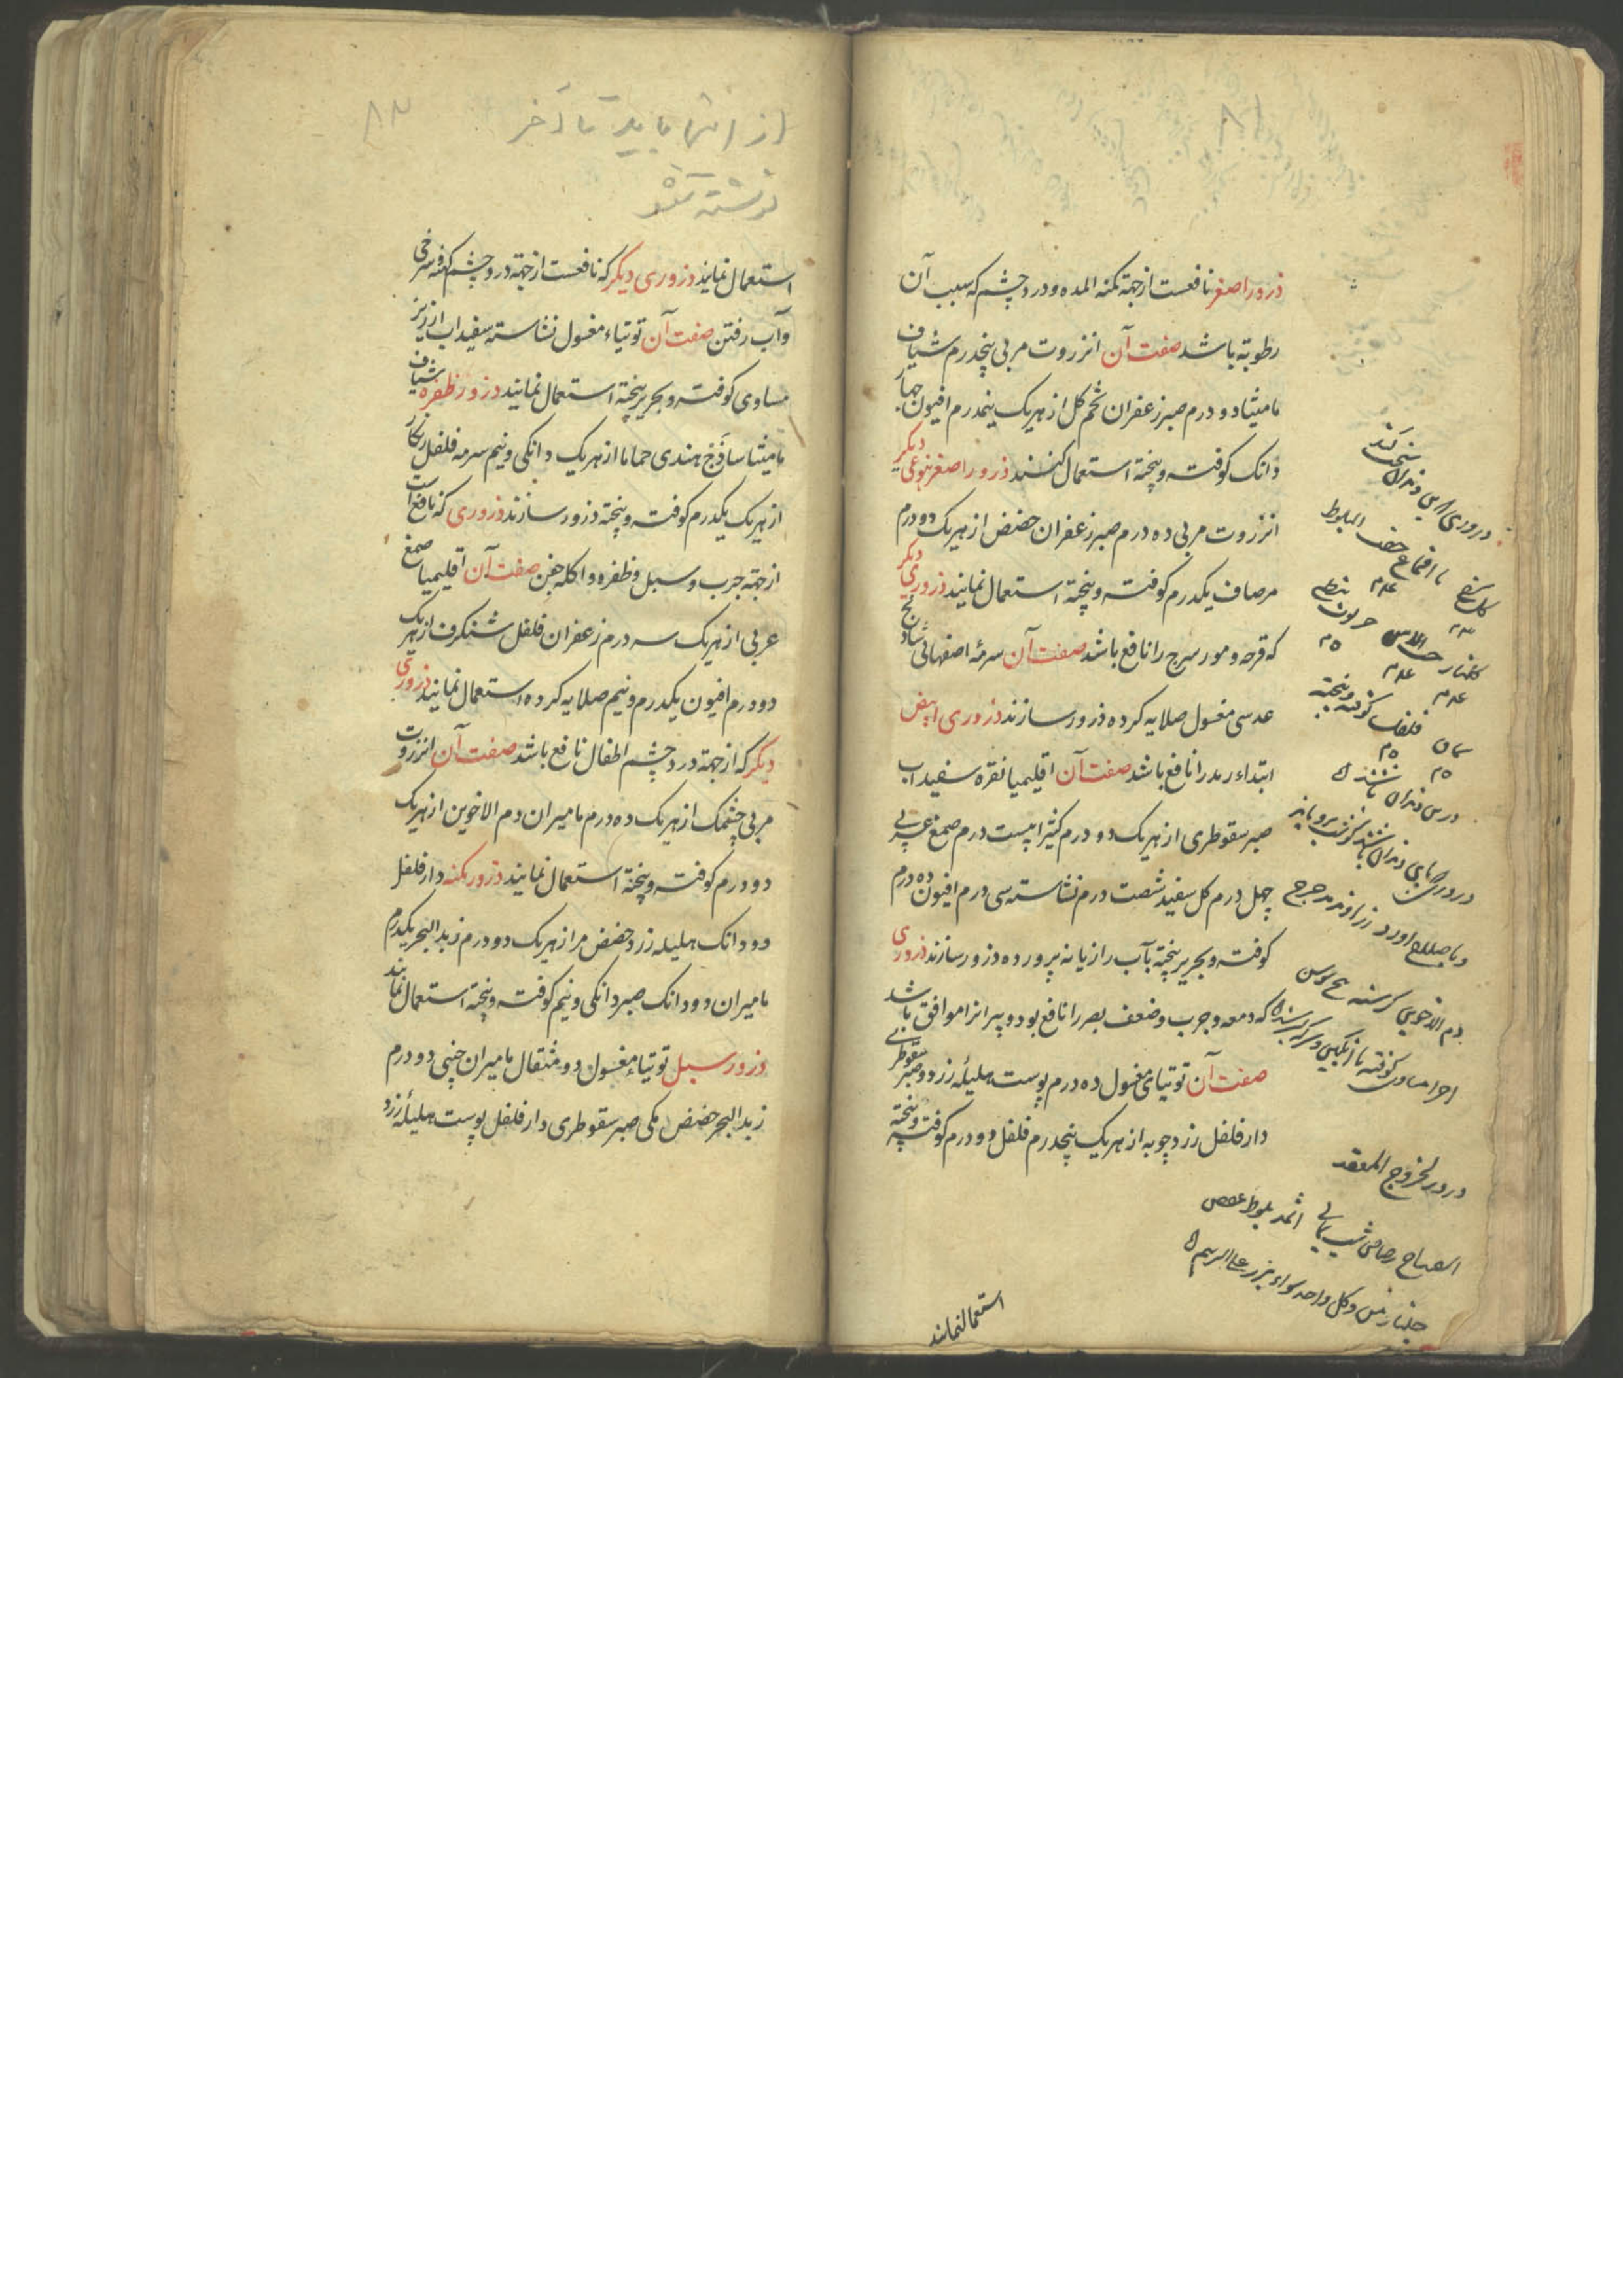 ذرور اصفر نافعست از جهة کمنه المده و درد چشم که سبب آن
رطوبة باشد صفت آن انزروت مربی پنجدرم شیاف
مامیثا دو درم صبر زعفران تخم کل از هریک نیمدرم افیون چهار
دانک کوفته و پخته استعمال کنند ذرور اصفر نوعی دیکر
انزروت مربی ده درم صبر زعفران حضض از هریک دو درم
مرصاف یکدرم کوفته و پخته استعمال نمایند ذروری دیکر
که قرحه و مورسرج را نافع باشد صفت آن سرمه اصفهانی شادنج
عدسی مغسول صلایه کرده ذرور سازند ذروری ابیض
ابتداء رمد را نافع باشد صفت آن اقلیمیا نقره سفیداب
صبر سقوطری از هریک دو درم کثیرا بیست درم صمغ عربی
چهل درم کل سفید شصت درم نشاسته سی درم افیون ده درم
کوفته و بحریر پخته بآب رازیانه پرورده ذرور سازند ذروری
که دمعه و جرب و ضعف بصر را نافع بود و پیرانرا موافق باشد
صفت آن توتیای مغسول ده درم پوست هلیله زرد و صبر سقوطری
دارفلفل زردچوبه از هریک پنجدرم فلفل دو درم کوفته و پخته
استعمال نمایند
دروری کی این دندان سخت کند
کلسرخ با اقماع جفت البلوط
کلنار حب الاس
سماق فلفل کوفته و پخته
درس دندان باشند
زراوند مدحرج
دم الاخوین کرسنه بیخ سوسن
اجزا مساوی کوفته با انکبین و سرکه
درور لخروج المقعد
اسفیداج رصاص شب یمانی اثمد بلوط عفص
جلنار من کل واحد سواء
۸۲
از اینجا باید تا آخر
نوشته شود
استعمال نمایند ذروری دیکر که نافعست از جهة درد چشم کهنه و سرخی
و آب رفتن صفت آن توتیاء مغسول نشاسته سفیداب ارزیز
مساوی کوفته و بحریر پخته استعمال نمایند ذرور ظفره شیاف
مامیثا ساذج هندی حماما از هریک دانکی و نیم سرمه فلفل زنکار
از هریک یکدرم کوفته و پخته ذرور سازند ذروری که نافع است
از جهة جرب و سبل و ظفره و اکله جفن صفت آن اقلیمیا صمغ
عربی از هریک سه درم زعفران فلفل شنکرف از هریک
دو درم افیون یکدرم و نیم صلایه کرده استعمال نمایند ذروری
دیکر که از جهة درد چشم اطفال نافع باشد صفت آن انزروت
مربی چشمک از هریک ده درم مامیران دم الاخوین از هریک
دو درم کوفته و پخته استعمال نمایند ذرور کمنه دارفلفل
دو دانک هلیله زرد حضض مر از هریک دو درم زبد البحر یکدرم
مامیران دو دانک صبر دانکی و نیم کوفته و پخته استعمال نمایند
ذرور سبل توتیاء مغسول دو مثقال مامیران چینی دو درم
زبد البحر حضض مکی صبر سقوطری دارفلفل پوست هلیله زرد